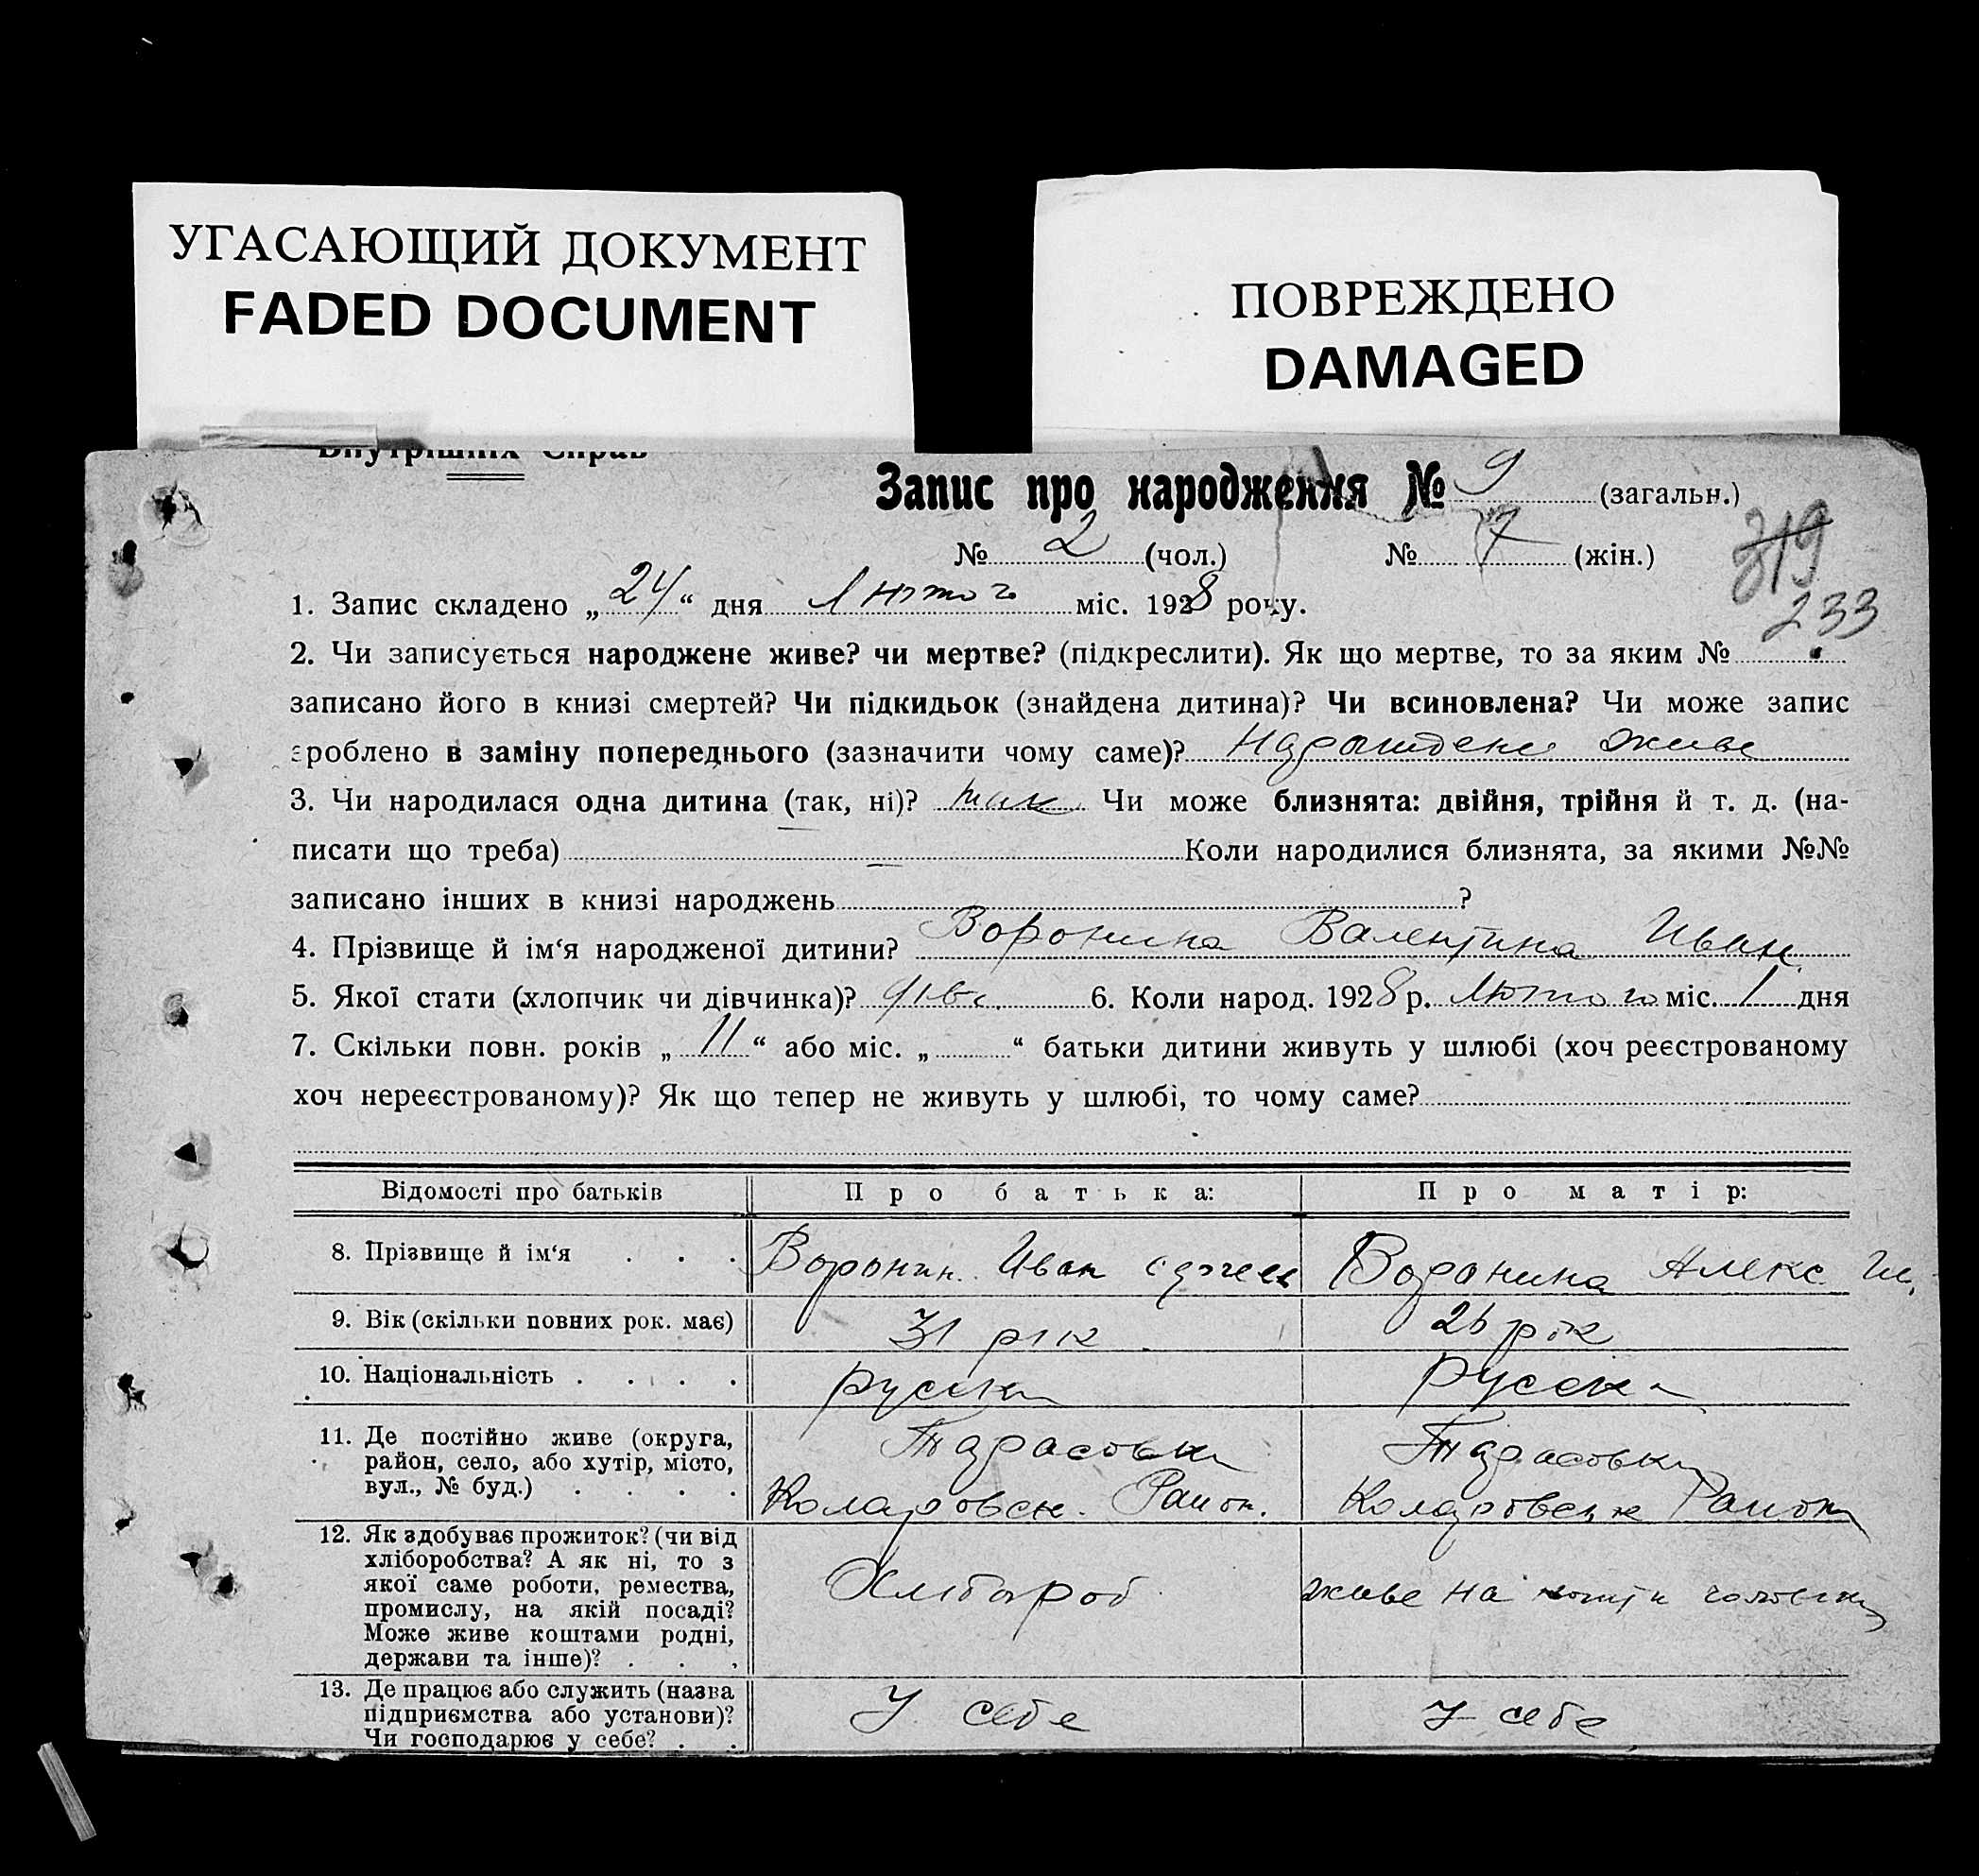 УГАСАЮЩИЙ ДОКУМЕНТ
FADED DOCUMENT
ПОВРЕЖДЕНО
DAMAGED
Внутрішніх Справ
Запис про народження № 9 (загальн.)
№ 2 (чол.) № 7 (жін.)
319
233
1. Запис складено „24“ дня Лютого міс. 1928 року.
2. Чи записується народжене живе? чи мертве? (підкреслити). Як що мертве, то за яким №
записано його в книзі смертей? Чи підкидьок (знайдена дитина)? Чи всиновлена? Чи може запис
зроблено в заміну попереднього (зазначити чому саме)? живе
3. Чи народилася одна дитина (так, ні)? так Чи може близнята: двійня, трійня й т. д. (на-
писати що треба) — Коли народилися близнята, за якими №№
записано інших в книзі народжень ?
4. Прізвище й ім‘я народженої дитини? Воронина Валентина Иван.
5. Якої стати (хлопчик чи дівчинка)? дівч. 6. Коли народ. 1928 р. Лютого міс. 1 дня
7. Скільки повн. років „11“ або міс. „ “ батьки дитини живуть у шлюбі (хоч реєстрованому
хоч нереєстрованому)? Як що тепер не живуть у шлюбі, то чому саме?
Відомості про батьків Про батька: Про матір:
8. Прізвище й ім‘я . . . Воронин. Иван Воронина Алекс.
9. Вік (скільки повних рок. має) 31 рік 26 рік
10. Національність . . . . руська руська
11. Де постійно живе (округа,
район, село, або хутір, місто,
вул., № буд.) . . . .
Тарасовка
Коларовск. Район.
Тарасовка
Коларовськ Район
12. Як здобуває прожиток? (чи від
хліборобства? А як ні, то з
якої саме роботи, ремества,
промислу, на якій посаді?
Може живе коштами родні,
держави та інше)? . . .
Хлібороб
живе на кошти чоловіка
13. Де працює або служить (назва
підприємства або установи)?
Чи господарює у себе? . .
У себе
У себе